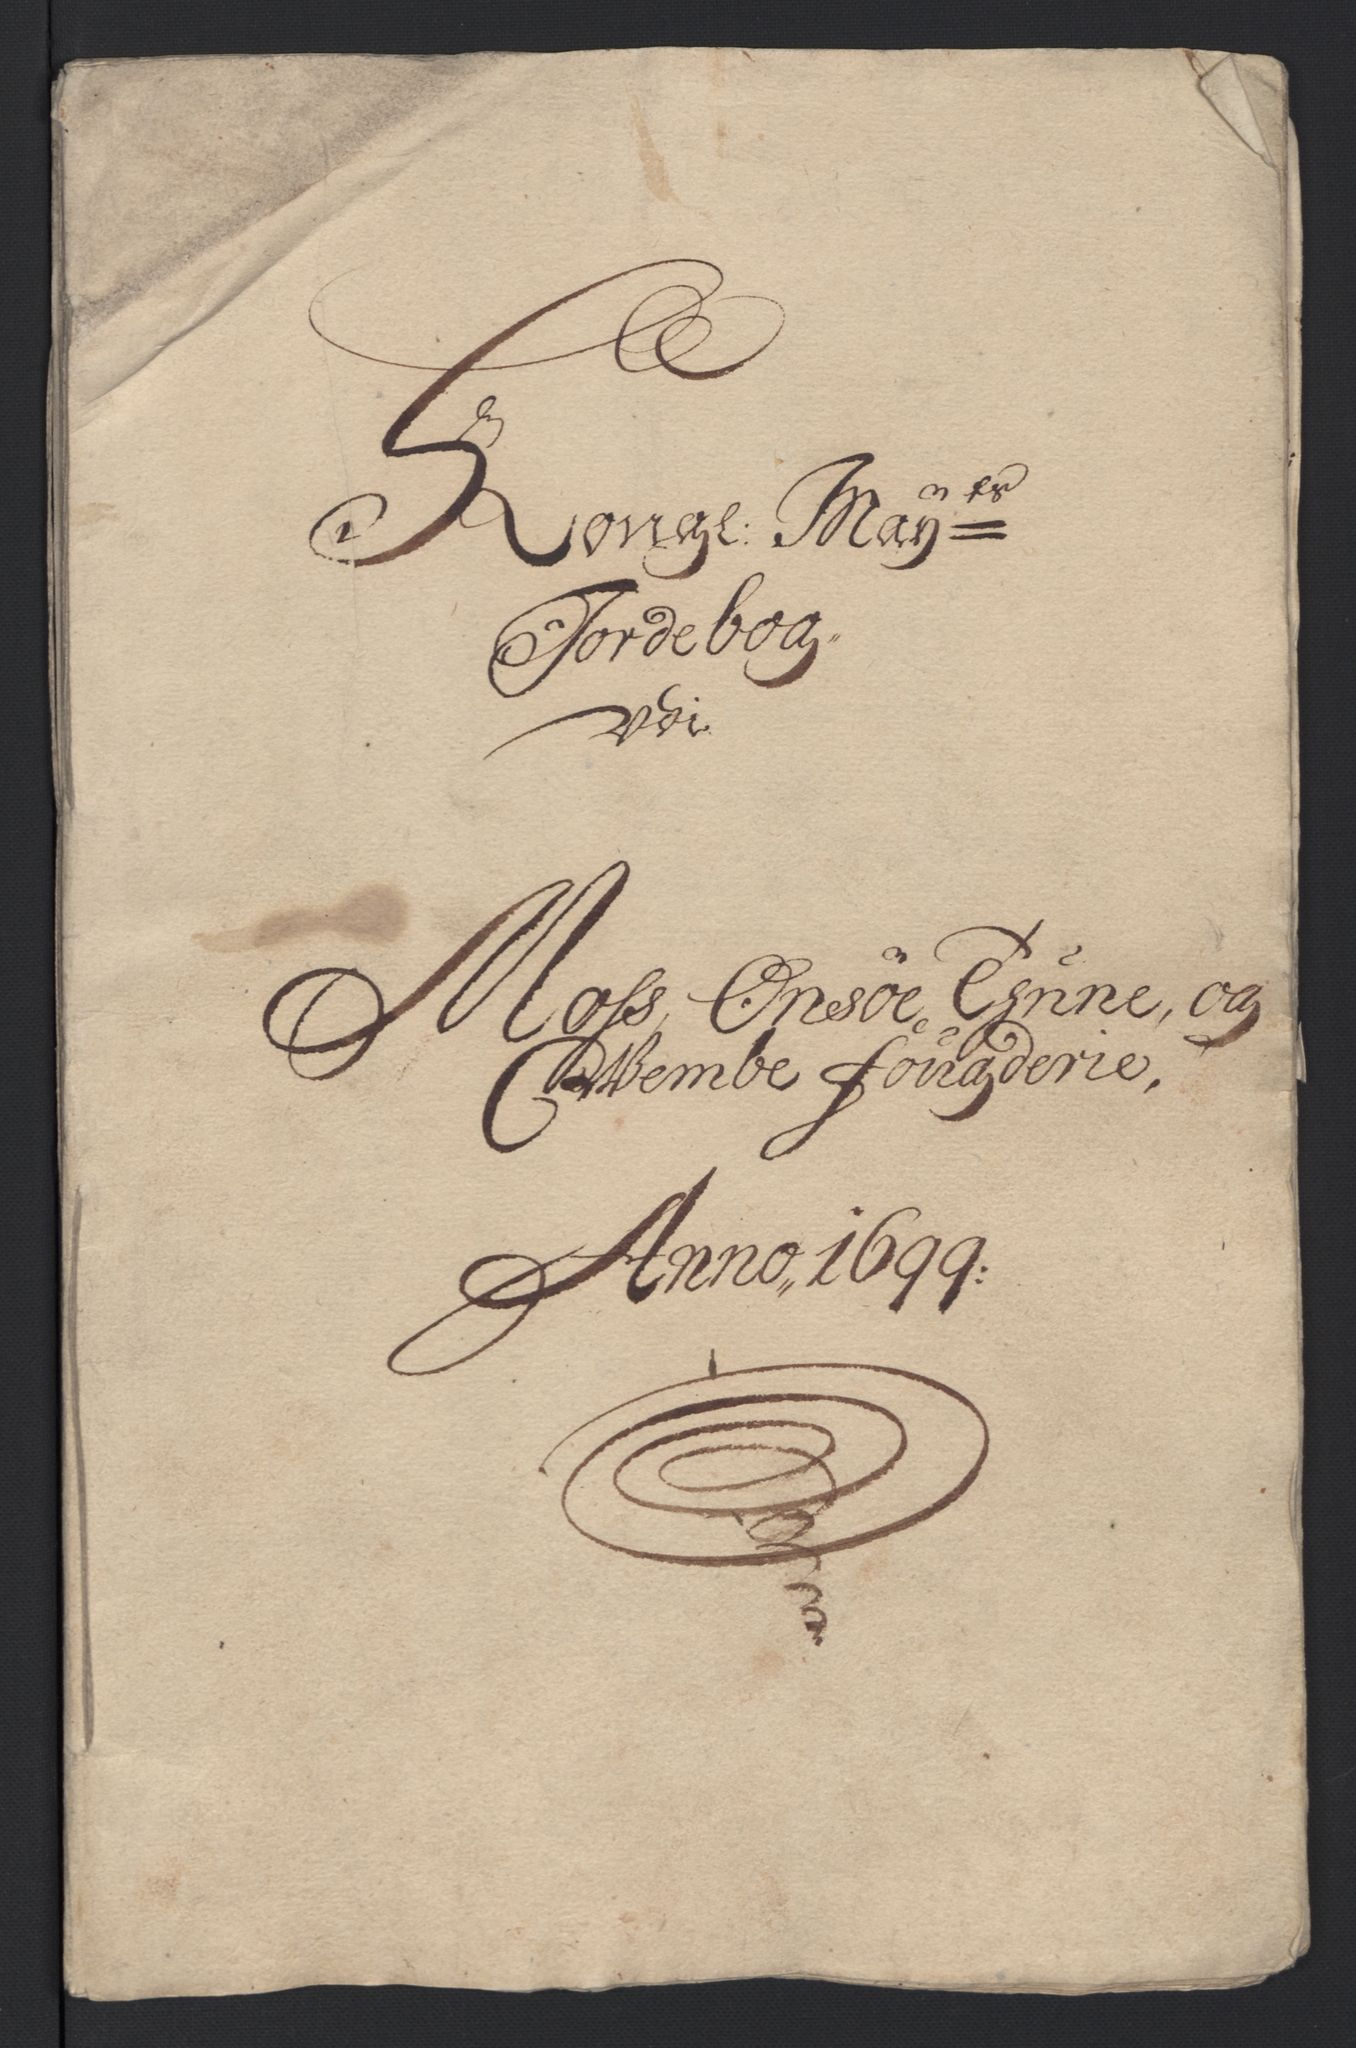 Kongl: Maÿ=ts
Jordebog
Moss, Onsöe, Tÿune, og
Wembe fougderie,
Anno, 1699: